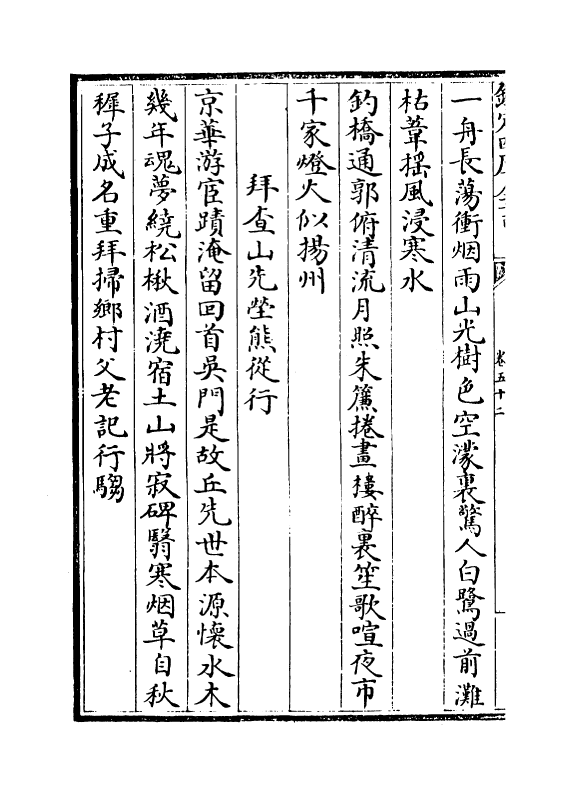 一舟長蕩衝烟雨山光樹色空濛裏驚人白鷺過前灘
枯葦揺風浸寒水
釣橋通郭俯清流月照朱簾捲畫樓醉裏笙歌喧夜市
千家燈火似揚州
拜查山先塋熊從行
京華游宦蹟淹留回首吳門是故丘先世本源懷水木
幾年魂夢繞松楸酒澆宿土山將寂碑翳寒烟草自秋
穉子成名重拜掃鄉村父老記行騶
卷五十二